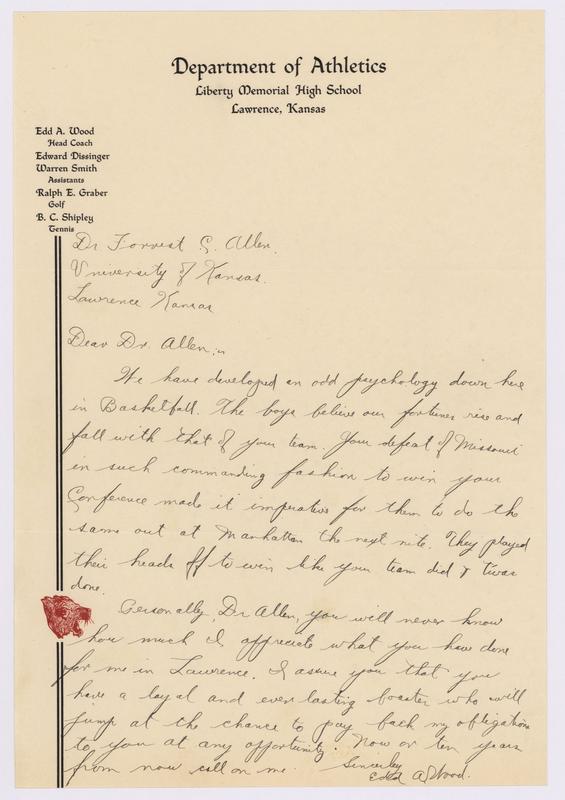 Department of Athletics
Liberty Memorial High School
Lawrence, Kansas
Edd A. Wood
Head Coach
Edward Dissinger
Warren Smith
Assistants
Ralph E. Graber
Golf
B. C. Shipley
Tennis
Dr Forrest C. Allen.
University of Kansas.
Lawrence Kansas
Dear Dr. Allen:-
We have developed an odd psychology down here
in Basketball. The boys believe our fortunes rise and
fall with that of your team. Your defeat of Missouri
in such commanding fashion to win your
Conference made it imperative for them to do the
same out at Manhattan the next nite. They played
their heads off to win like your team did & twas
done.
Personally, Dr Allen, you will never know
how much I appreciate what you have done
for me in Lawrence. I assure you that you
have a loyal and everlasting booster who will
jump at the chance to pay back my obligations
to you at any opportunity. Now or ten years
from now call on me.
Sincerely
Edd A Wood.